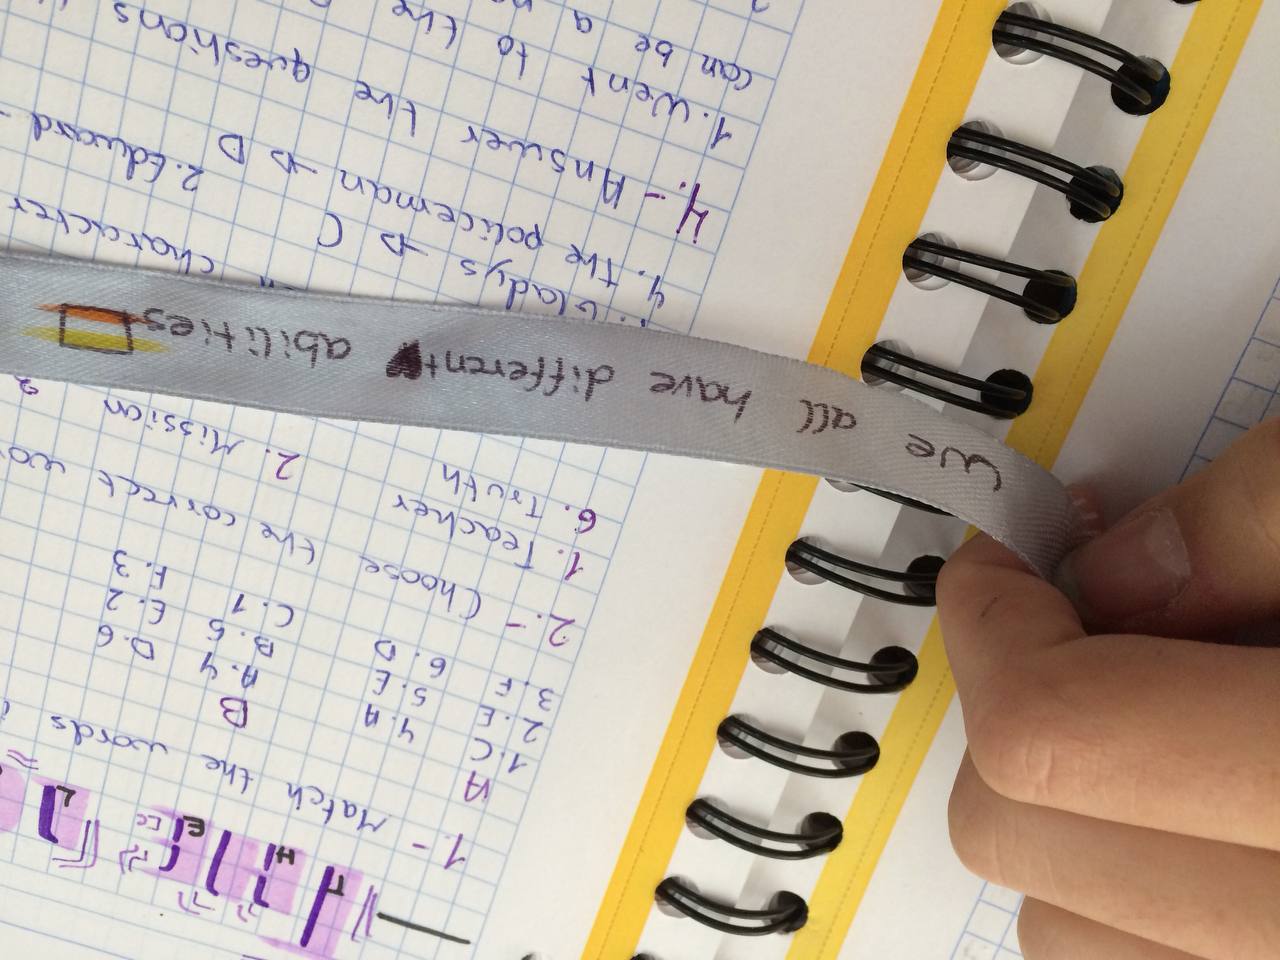 We all have different abilities
1.- Match the words
A
B
1.C
4.A
A.4
D.6
2.E
5.E
B.5
E.2
3.F
6.D
C.1
F.3
2.- Choose the correct
1. Teacher
2. Mission
6. Truth
character
Gladys → C
2. Edward
4. The policeman → D
4.- Answer the questions
1. Went to the
can be a